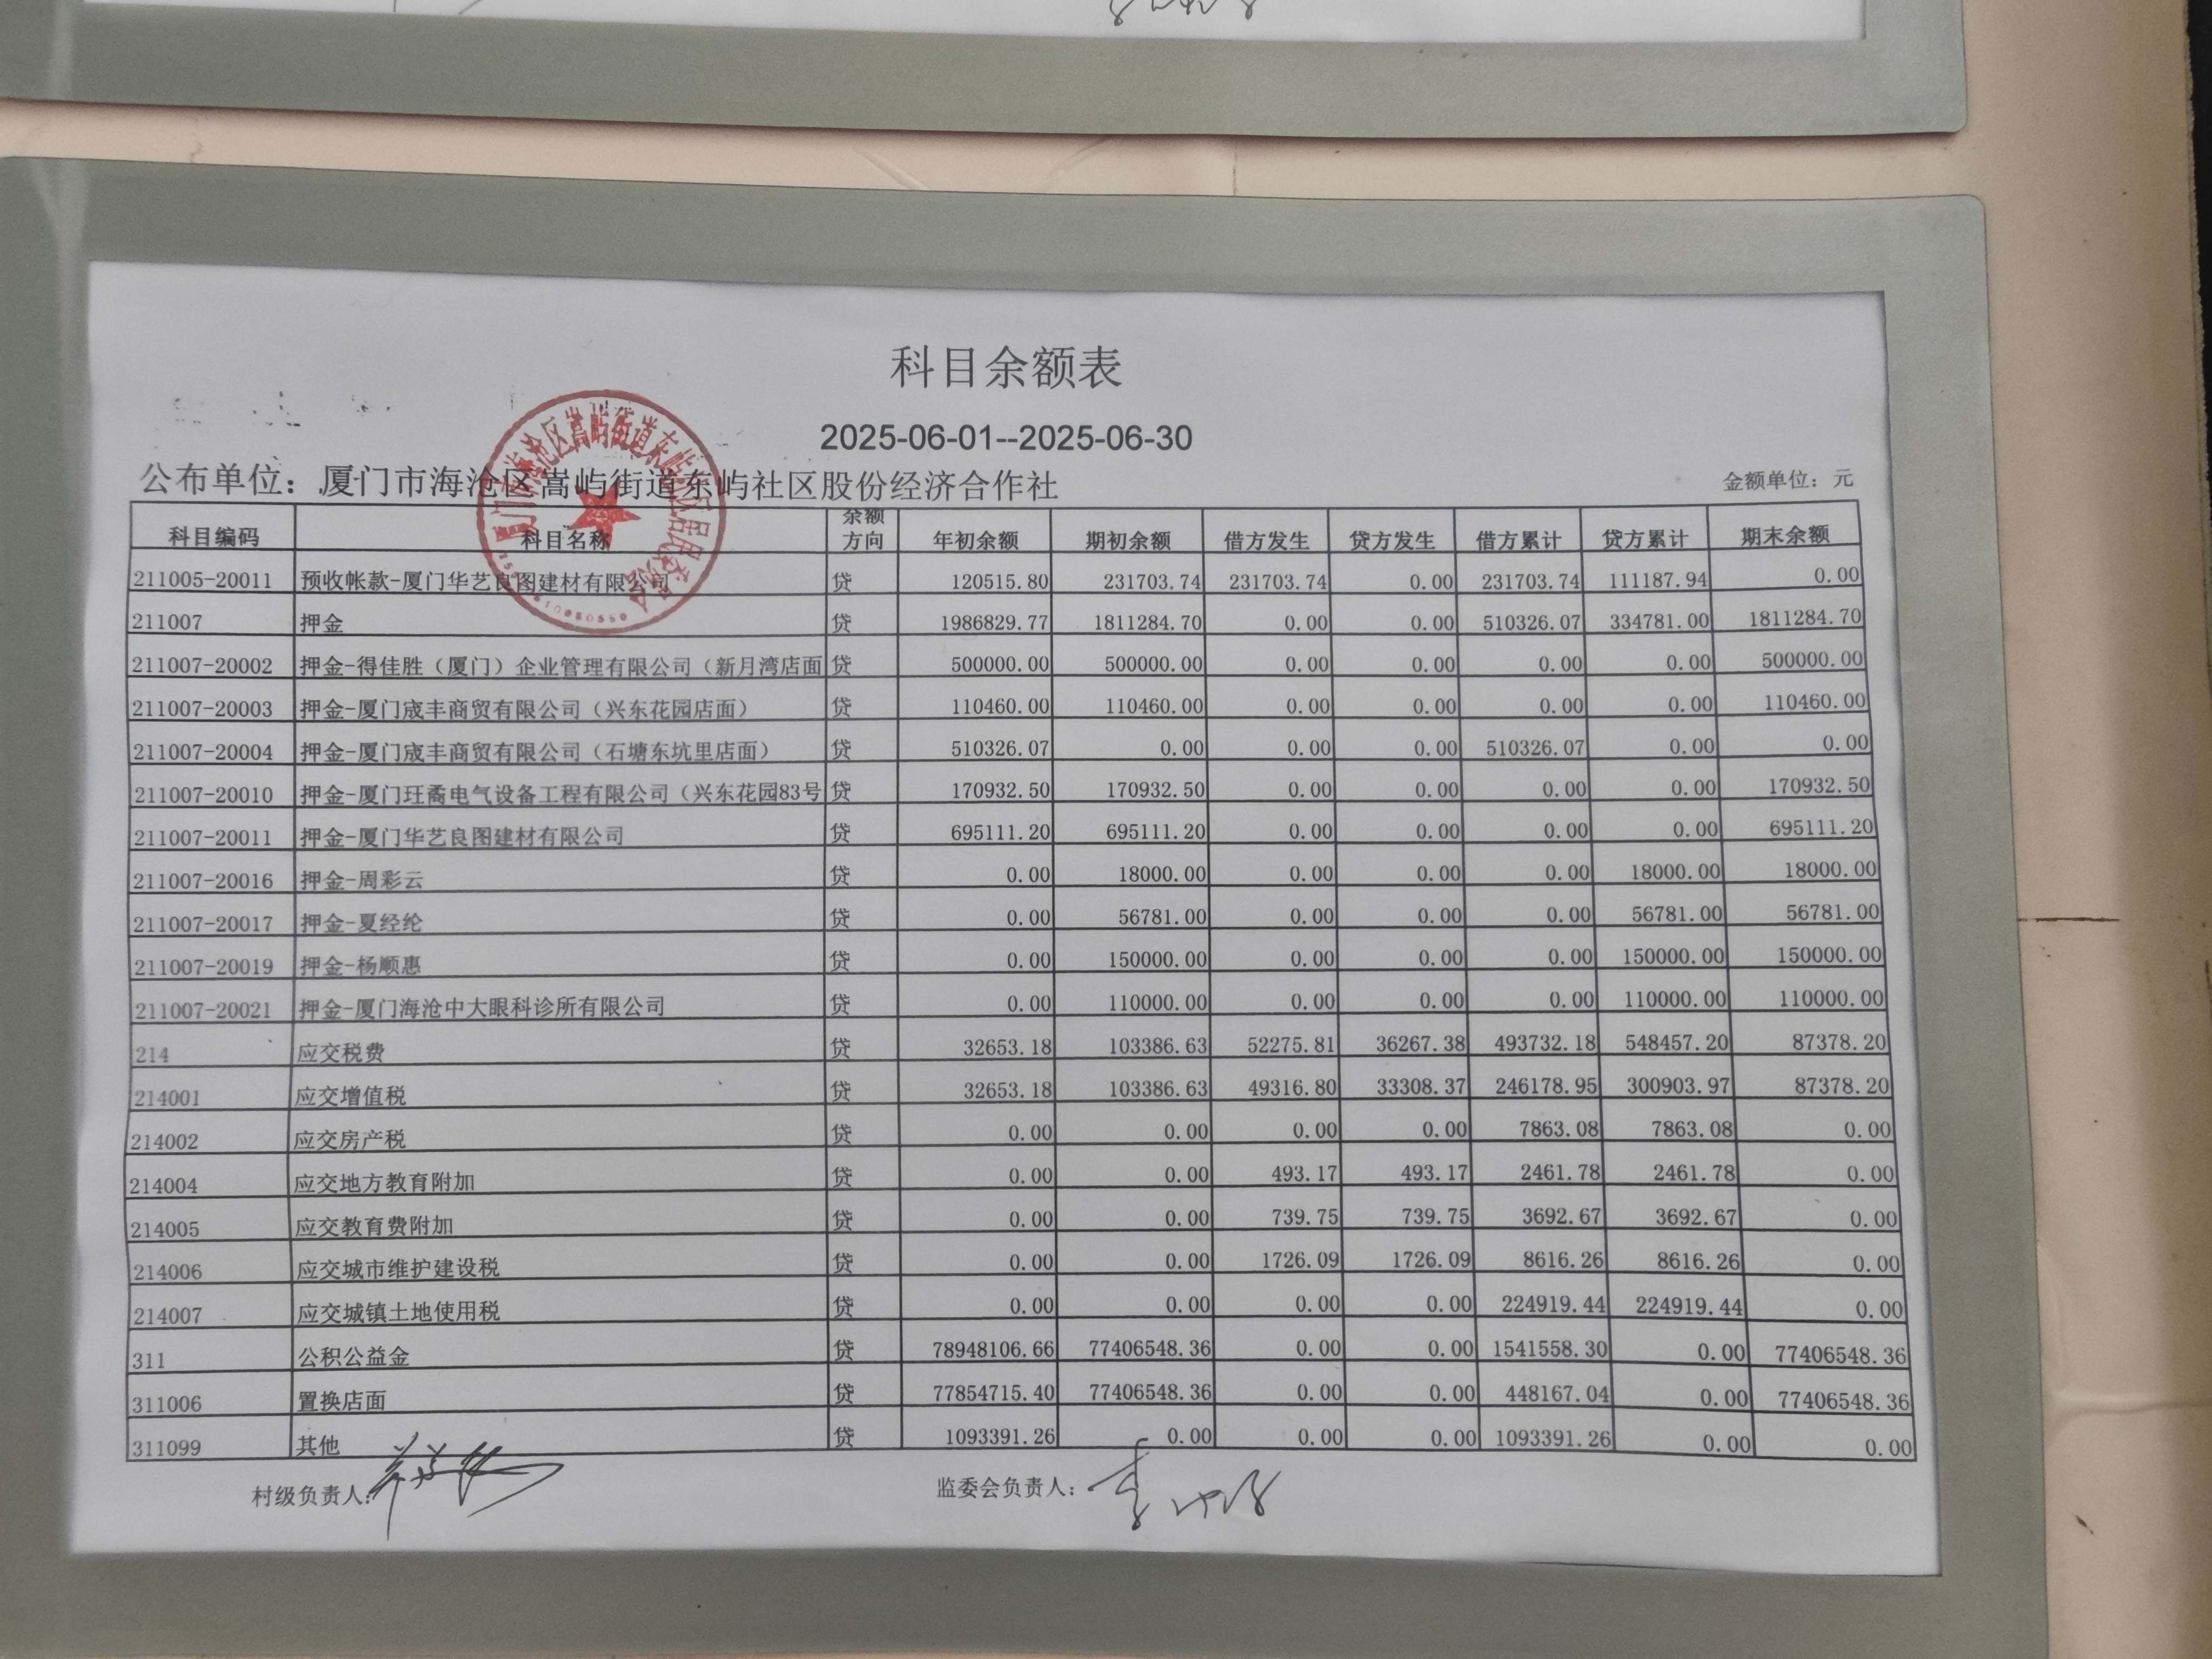 科目余额表
2025-06-01--2025-06-30
公布单位：厦门市海沧区嵩屿街道东屿社区股份经济合作社 金额单位：元
科目编码 科目名称 余额方向 年初余额 期初余额 借方发生 贷方发生 借方累计 贷方累计 期末余额
211005-20011 预收帐款-厦门华艺良图建材有限公司 贷 120515.80 231703.74 231703.74 0.00 231703.74 111187.94 0.00
211007 押金 贷 1986829.77 1811284.70 0.00 0.00 510326.07 334781.00 1811284.70
211007-20002 押金-得佳胜（厦门）企业管理有限公司（新月湾店面 贷 500000.00 500000.00 0.00 0.00 0.00 0.00 500000.00
211007-20003 押金-厦门宬丰商贸有限公司（兴东花园店面） 贷 110460.00 110460.00 0.00 0.00 0.00 0.00 110460.00
211007-20004 押金-厦门宬丰商贸有限公司（石塘东坑里店面） 贷 510326.07 0.00 0.00 0.00 510326.07 0.00 0.00
211007-20010 押金-厦门玨矞电气设备工程有限公司（兴东花园83号 贷 170932.50 170932.50 0.00 0.00 0.00 0.00 170932.50
211007-20011 押金-厦门华艺良图建材有限公司 贷 695111.20 695111.20 0.00 0.00 0.00 0.00 695111.20
211007-20016 押金-周彩云 贷 0.00 18000.00 0.00 0.00 0.00 18000.00 18000.00
211007-20017 押金-夏经纶 贷 0.00 56781.00 0.00 0.00 0.00 56781.00 56781.00
211007-20019 押金-杨顺惠 贷 0.00 150000.00 0.00 0.00 0.00 150000.00 150000.00
211007-20021 押金-厦门海沧中大眼科诊所有限公司 贷 0.00 110000.00 0.00 0.00 0.00 110000.00 110000.00
214 应交税费 贷 32653.18 103386.63 52275.81 36267.38 493732.18 548457.20 87378.20
214001 应交增值税 贷 32653.18 103386.63 49316.80 33308.37 246178.95 300903.97 87378.20
214002 应交房产税 贷 0.00 0.00 0.00 0.00 7863.08 7863.08 0.00
214004 应交地方教育附加 贷 0.00 0.00 493.17 493.17 2461.78 2461.78 0.00
214005 应交教育费附加 贷 0.00 0.00 739.75 739.75 3692.67 3692.67 0.00
214006 应交城市维护建设税 贷 0.00 0.00 1726.09 1726.09 8616.26 8616.26 0.00
214007 应交城镇土地使用税 贷 0.00 0.00 0.00 0.00 224919.44 224919.44 0.00
311 公积公益金 贷 78948106.66 77406548.36 0.00 0.00 1541558.30 0.00 77406548.36
311006 置换店面 贷 77854715.40 77406548.36 0.00 0.00 448167.04 0.00 77406548.36
311099 其他 贷 1093391.26 0.00 0.00 0.00 1093391.26 0.00 0.00
村级负责人： 监委会负责人：